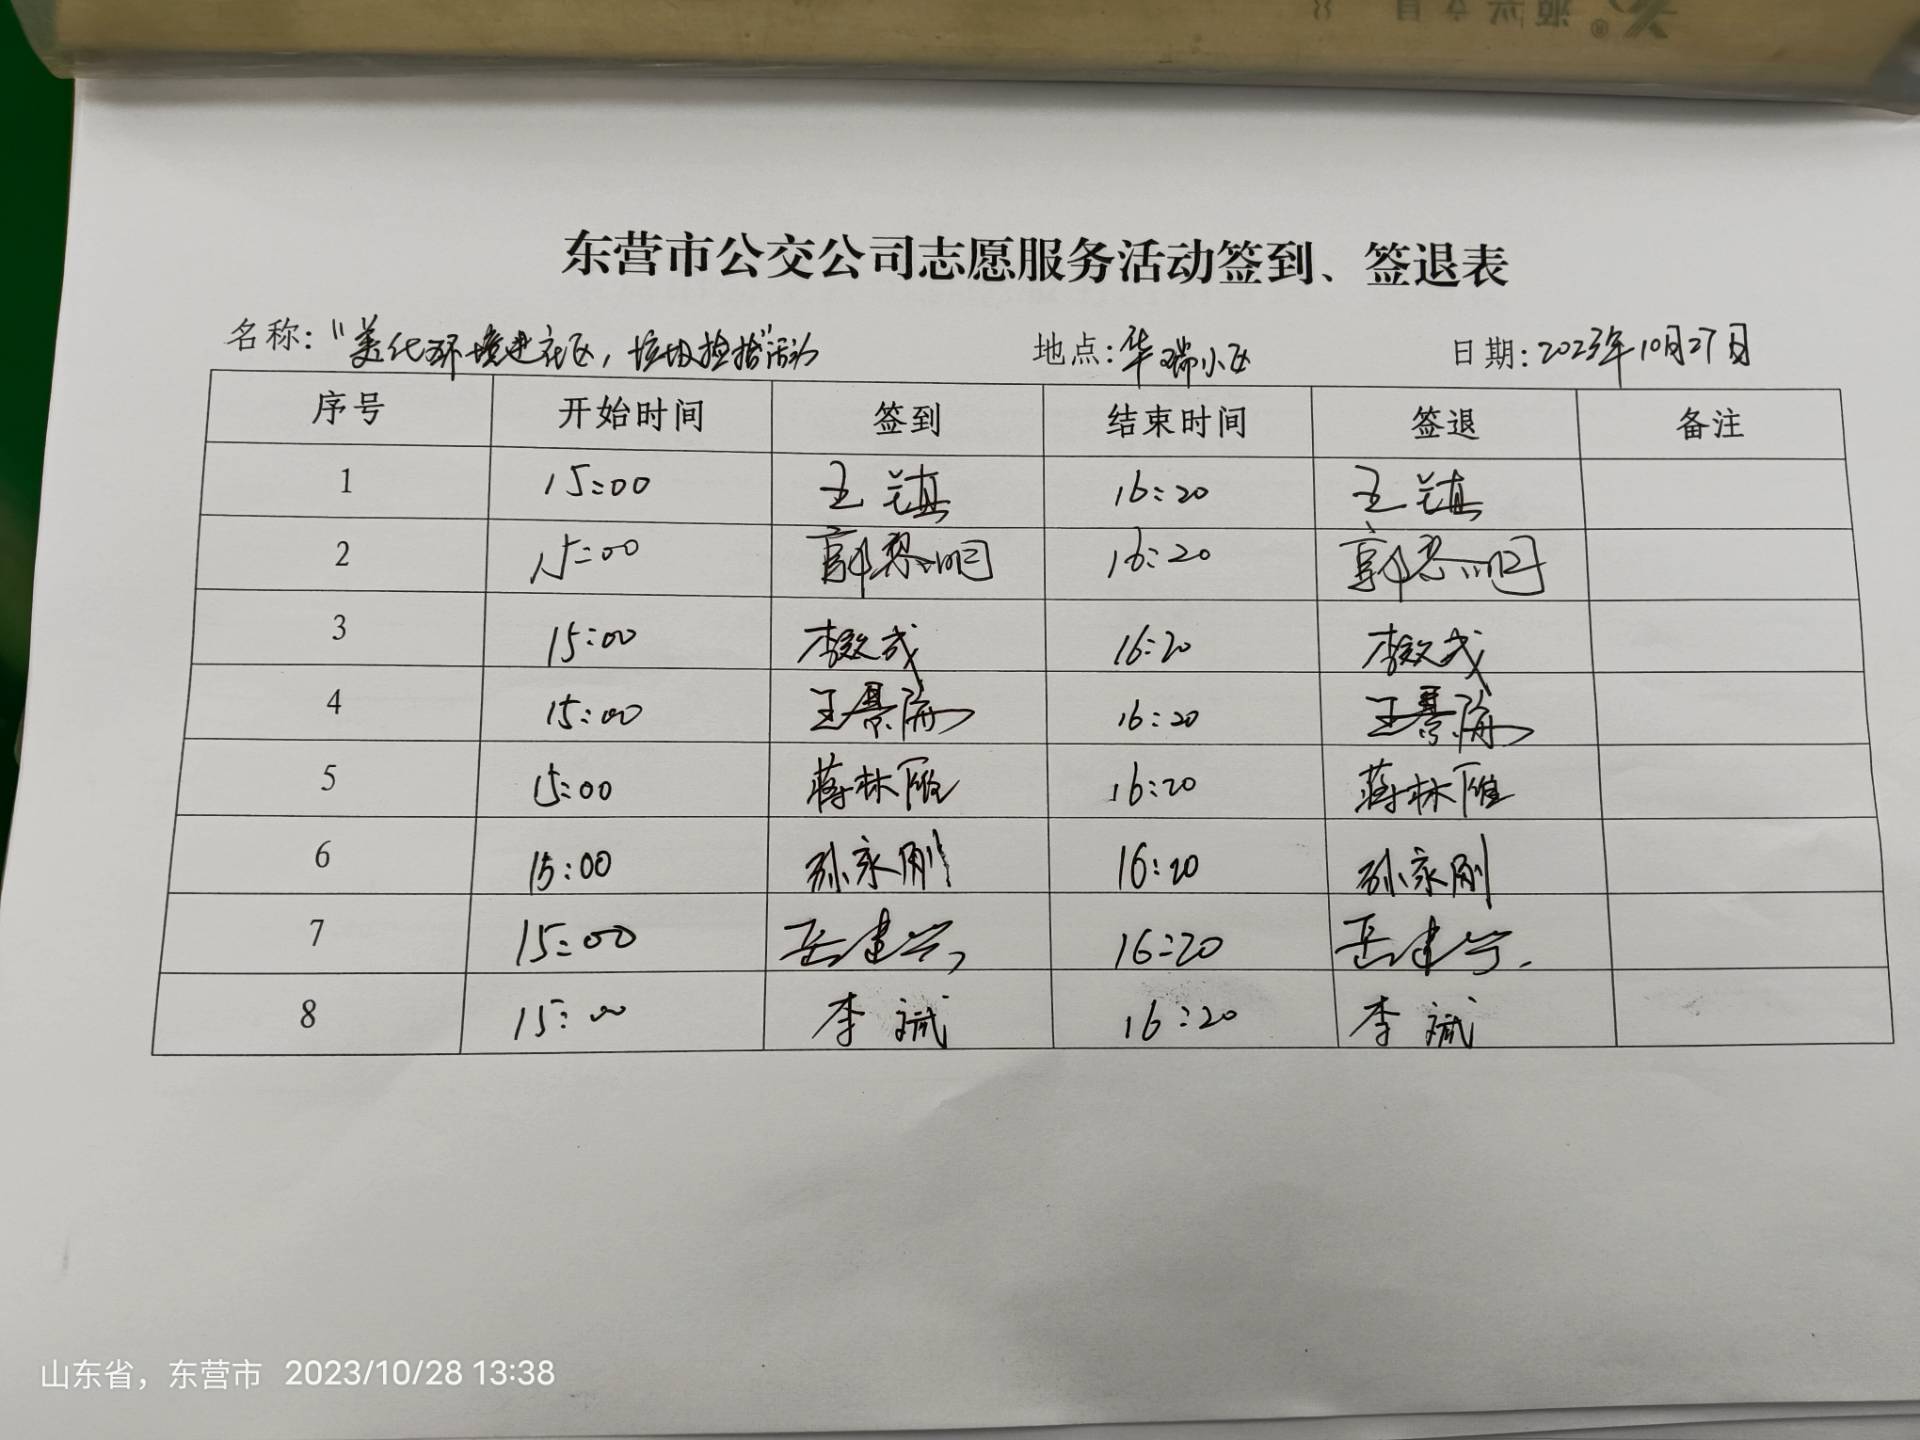 东营市公交公司志愿服务活动签到、签退表
名称："美化环境进社区，垃圾捡拾"活动 地点：华瑞小区 日期：2023年10月27日
序号 开始时间 签到 结束时间 签退 备注
1 15:00 王镇 16:20 王镇
2 15:00 郭 16:20 郭
3 15:00 李效武 16:20 李效武
4 15:00 王景 16:20 王景
5 15:00 蒋林雁 16:20 蒋林雁
6 15:00 孙永刚 16:20 孙永刚
7 15:00 岳建 16:20 岳建
8 15:00 李斌 16:20 李斌
山东省，东营市 2023/10/28 13:38